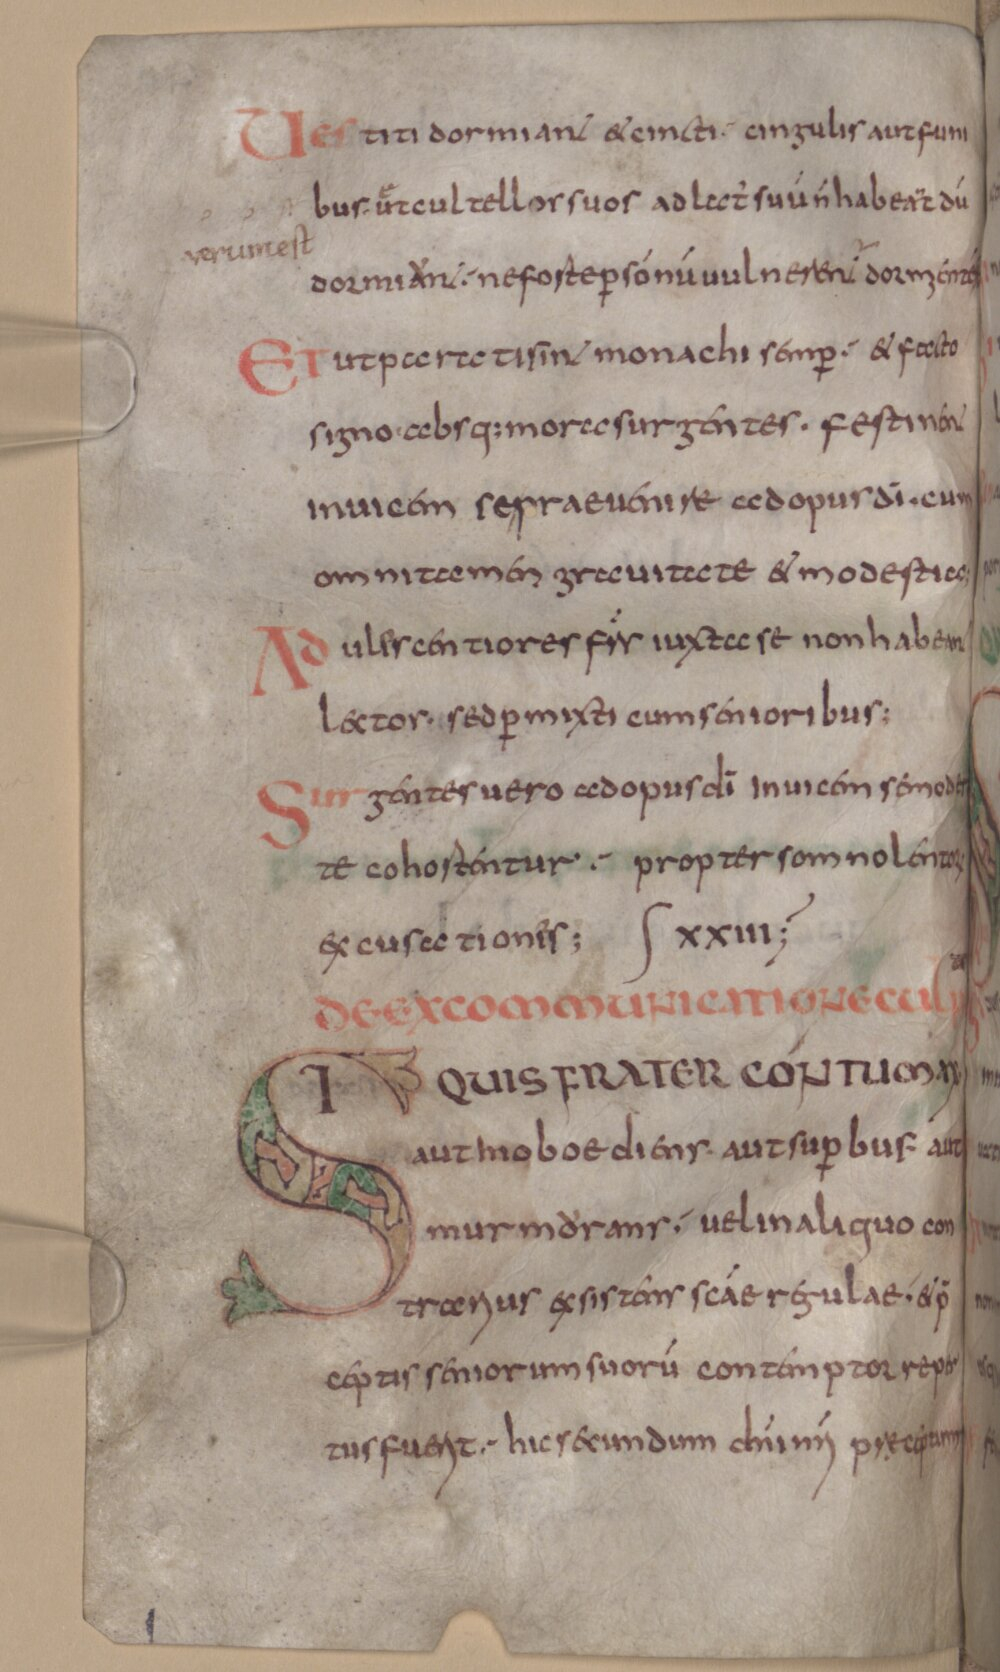 Uestiti dormiant & cincti · cingulis aut funi
bus · ut cultellos suos ad lect̄ suū n̄ habeat dū
verum est
dormiant · ne forte p̱ somnū uulnerent dormientē
Et ut parati sint monachi semp̱ · & facto
signo absq; mora surgentes · festinent
inuicem se praeuenire ad opus dī · cum
omni tamen grauitate & modestia;
Adulescentiores fr̄s iuxta se non habeant
lectos · sed p̱mixti cum senioribus;
Surgentes uero ad opus dī inuicem se mode
te cohortentur · propter somnolentorum
excusationes; XXIII;
DE EXCOMMUNICATIONE CULP
SI QUIS FRATER CONTUMAX
aut inoboediens · aut sup̱bus · aut
murmorans · uel in aliquo con
trarius existens sc̄ae regulae · & p̄
ceptis seniorum suorū contemptor reper
tus fuerit · hic secundum dn̄i nr̄i preceptum